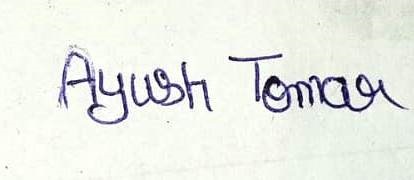 Ayush Tomar